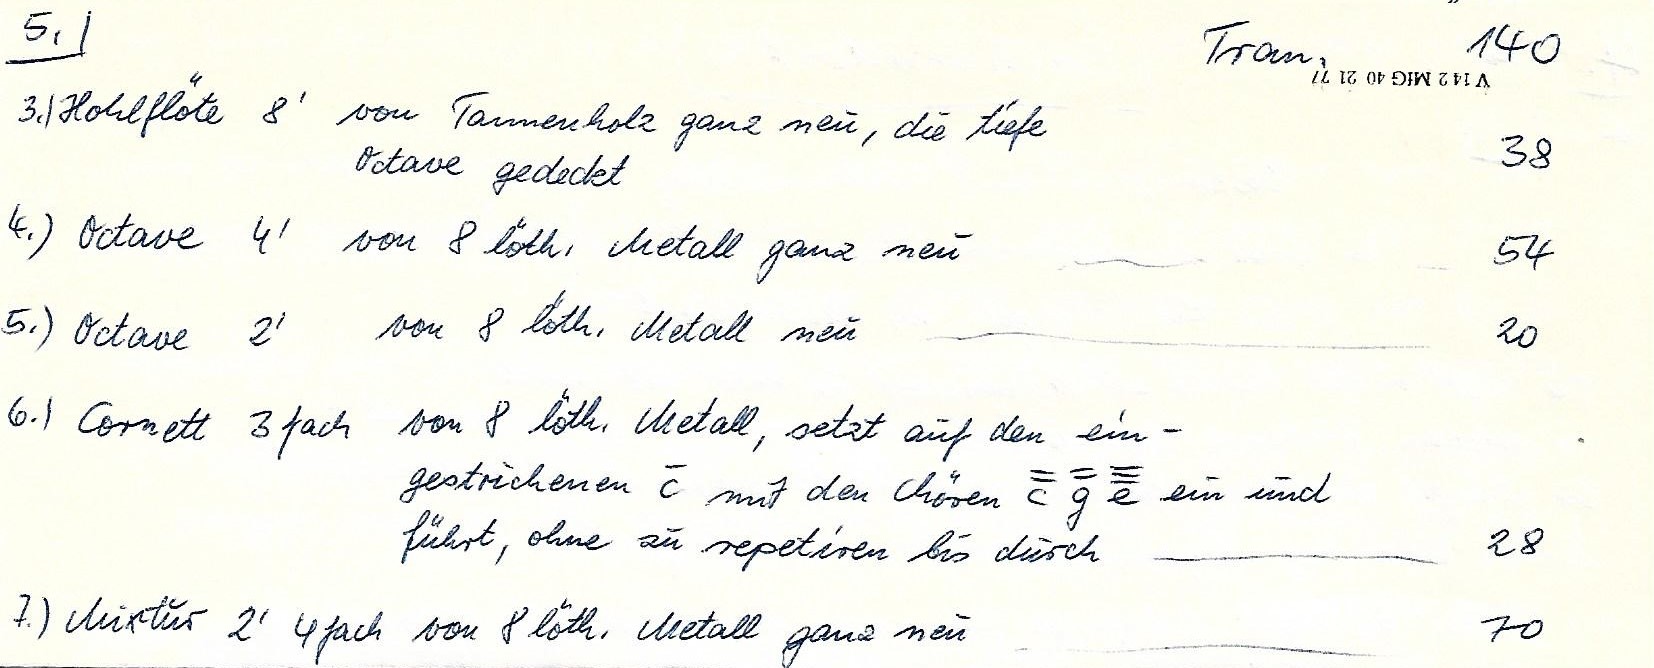 5.)
Tran. 140
V 142 MfG 40 21 77
3.) Hohlflöte 8' von Tannenholz ganz neu, die tiefe
Octave gedeckt 38
4.) Octave 4' von 8 löth. Metall ganz neu 54
5.) Octave 2' von 8 löth. Metall neu 20
6.) Cornett 3 fach von 8 löth. Metall, setzt auf den ein-
gestrichenen c̅ mit den Chören c̿ g̿ e̿̅ ein und
führt, ohne zu repetiren bis durch 28
7.) Mixtur 2' 4 fach von 8 löth. Metall ganz neu 70